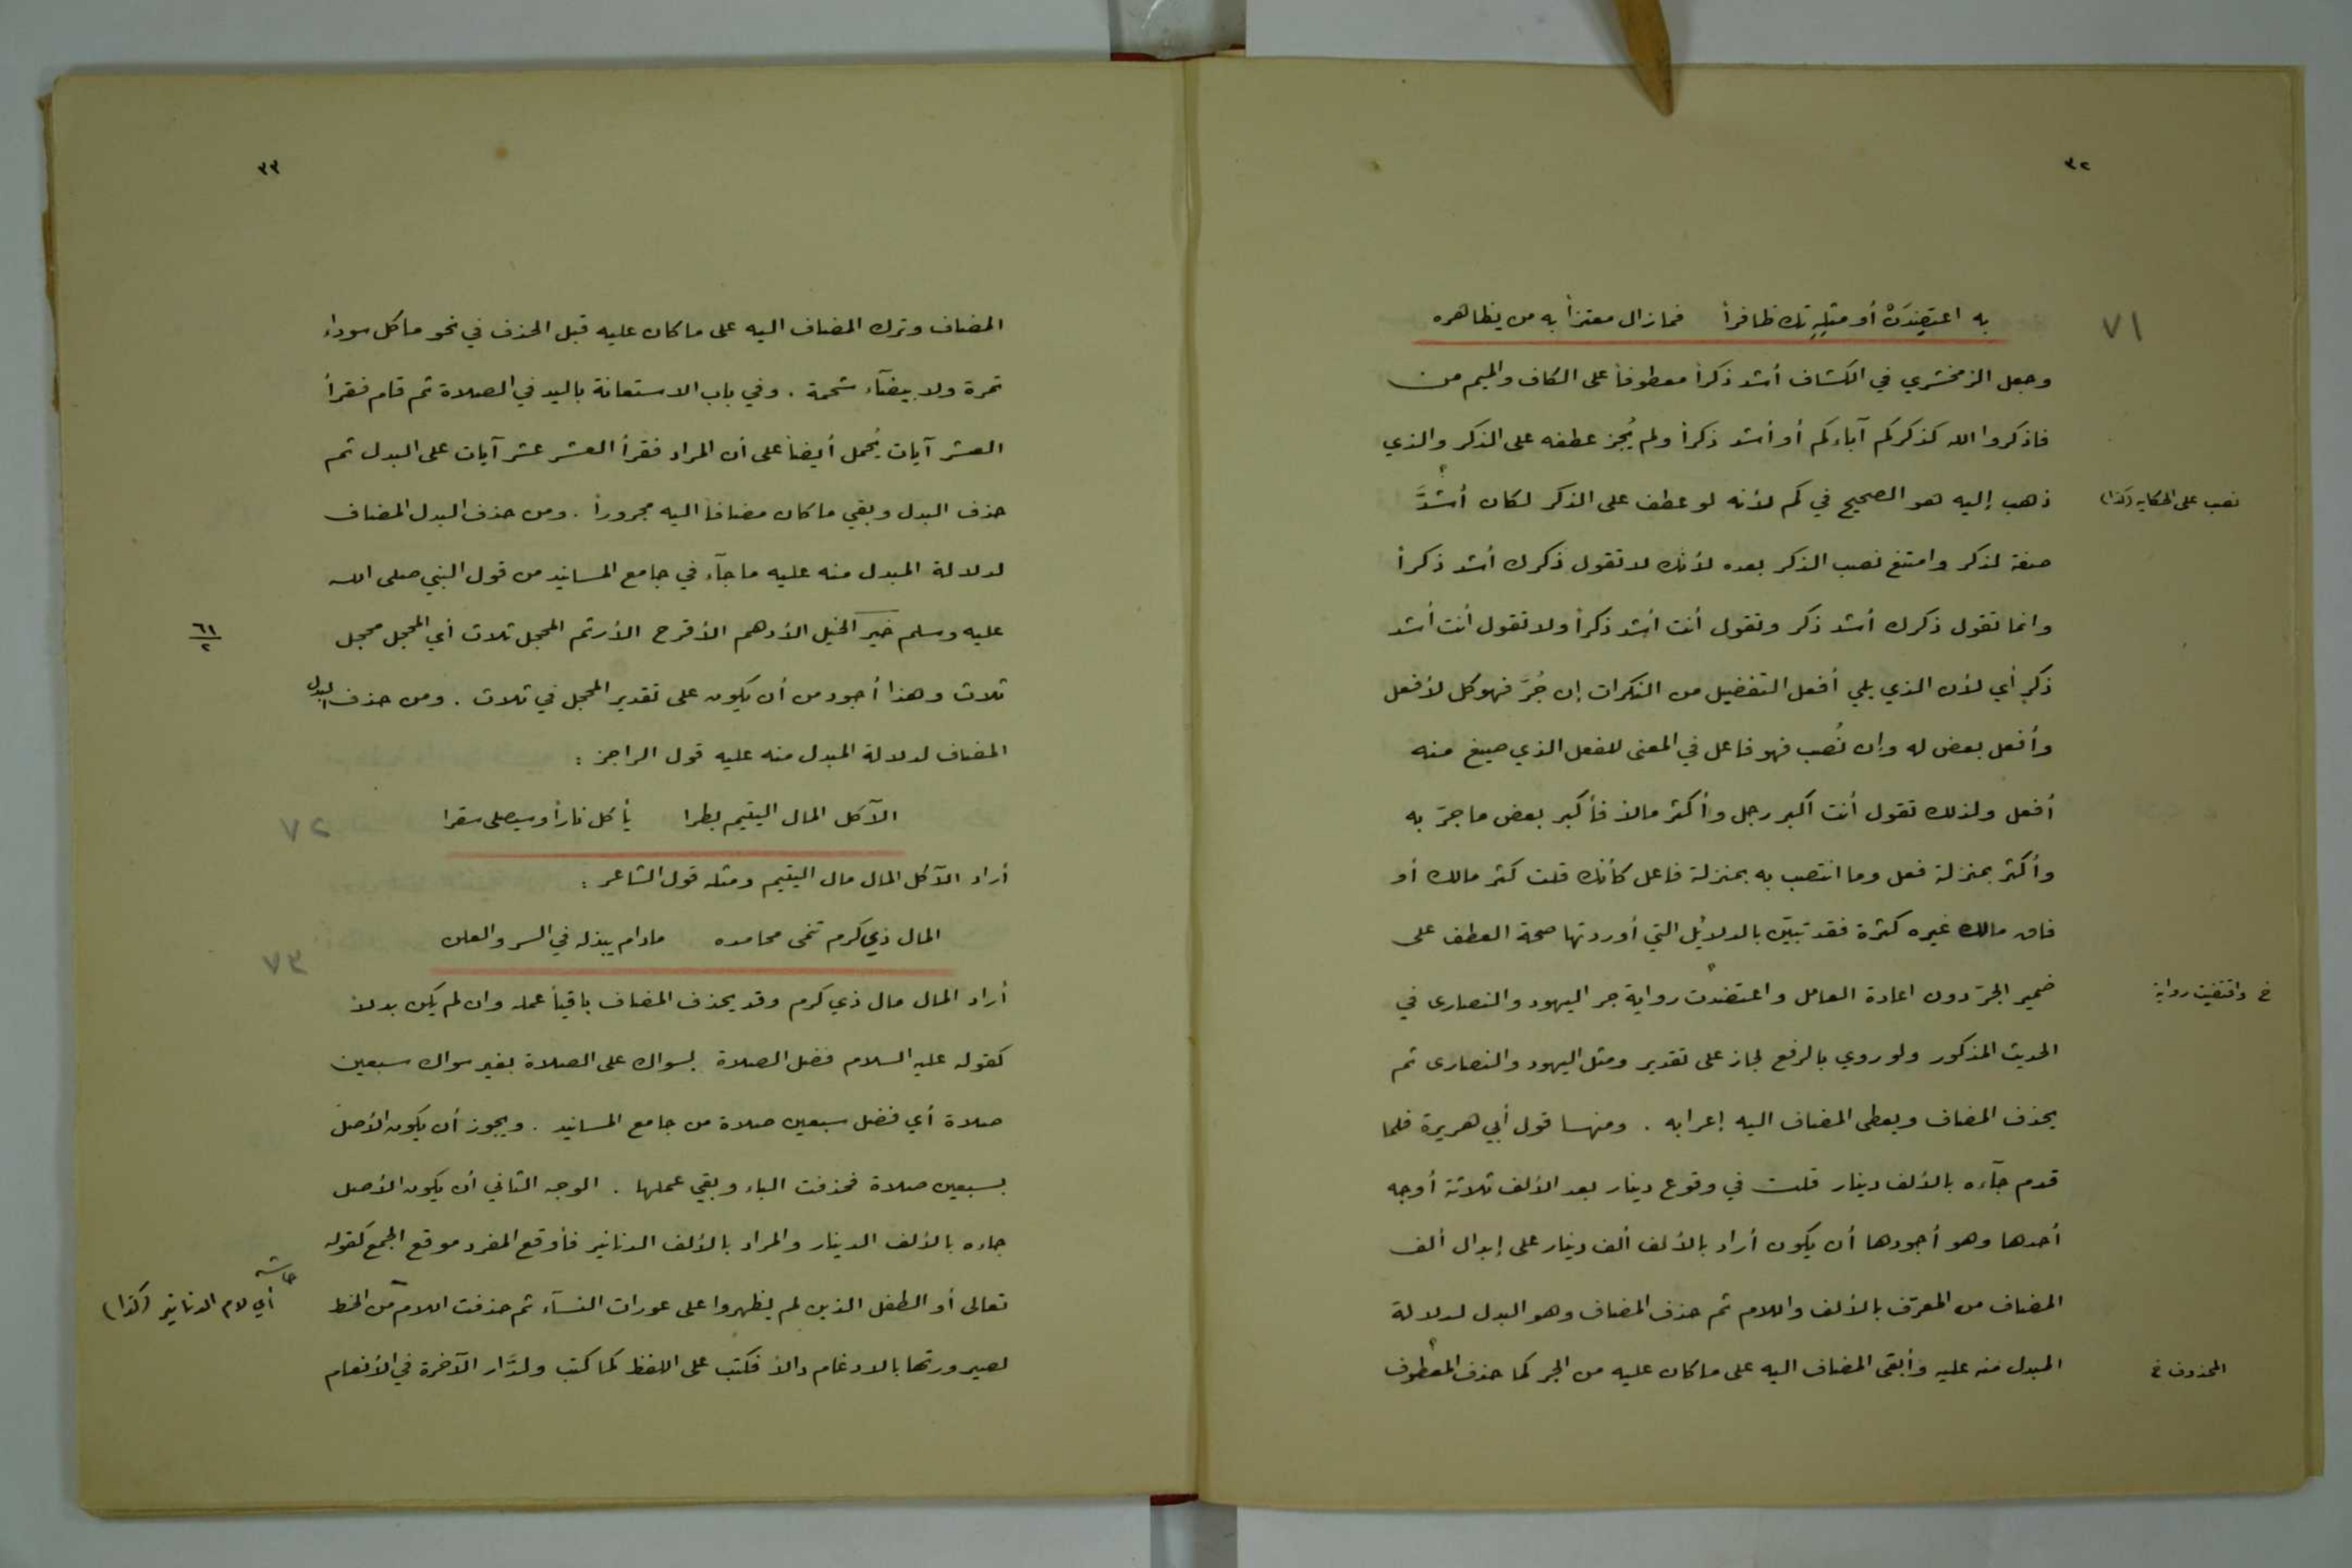 ٣٢
٧١
به اعتضِدَنْ أو مثلِهِ تك ظافراً فمازال معتزاً به من يظاهره
وجعل الزمخشري في الكشاف أشد ذكراً معطوفاً على الكاف والميم من
فاذكروا الله كذكركم آباءكم أو أشد ذكراً ولم يُجز عطفه على الذكر والذي
ذهب إليه هو الصحيح في كم لأنه لو عطف على الذكر لكان أشدَّ
نصب على الحكاية (كذا)
صفة لذكر وامتنع نصب الذكر بعده لأنك لا تقول ذكرك أشد ذكراً
وانما تقول ذكرك أشد ذكر وتقول أنت أشد ذكراً ولا تقول أنت أشد
ذكرٍ أي لأن الذي يلي أفعل التفضيل من النكرات إن جُرَّ فهو كل لأفعل
وأفعل بعض له وإن نُصب فهو فاعل في المعنى للفعل الذي صيغ منه
أفعل ولذلك تقول أنت أكبر رجل وأكثر مالاً فأكبر بعض ما جرّ به
وأكثر بمنزلة فعل وما انتصب به بمنزلة فاعل كأنك قلت كثر مالك أو
فاق مالك غيره كثرة فقد تبيّن بالدلائل التي أوردتها صحة العطف على
ضمير الجرّ دون اعادة العامل واعتضدت رواية جر اليهود والنصارى في
خ واقتفيت رواية
الحديث المذكور ولو روي بالرفع لجاز على تقدير ومثل اليهود والنصارى ثم
يحذف المضاف ويعطى المضاف اليه إعرابه . ومنها قول أبي هريرة فلما
قدم جآءه بالألف دينار قلت في وقوع دينار بعد الألف ثلاثة أوجه
أحدها وهو أجودها أن يكون أراد بالألف ألف دينار على إبدال ألف
المضاف من المعرّف بالألف واللام ثم حذف المضاف وهو البدل لدلالة
المبدل منه عليه وأبقى المضاف اليه على ما كان عليه من الجر كما حذف المعطوف
المحذوف خ
٣٣
المضاف وترك المضاف اليه على ما كان عليه قبل الحذف في نحو ما كل سوداء
تمرة ولا بيضآء شحمة . وفي باب الاستعانة باليد في الصلاة ثم قام فقرأ
العشر آيات يُحمل أيضاً على أن المراد فقرأ العشر عشر آيات على البدل ثم
حذف البدل وبقي ما كان مضافاً اليه مجروراً . ومن حذف البدل المضاف
لدلالة المبدل منه عليه ما جآء في جامع المسانيد من قول النبي صلى الله
عليه وسلم خير الخيل الأدهم الأقرح الأرثم المحجل ثلاث أي المحجل محجل
٦١
٢
ثلاث وهذا أجود من أن يكون على تقدير المحجل في ثلاث . ومن حذف البدل
المضاف لدلالة المبدل منه عليه قول الراجز :
الآكل المال اليتيم بطرا يأكل ناراً وسيصلى سقرا
٧٢
أراد الآكل المال مال اليتيم ومثله قول الشاعر :
المال ذي كرم تنمى محامده مادام يبذله في السر والعلن
٧٣
أراد المال مال ذي كرم وقد يحذف المضاف باقياً عمله وان لم يكن بدلاً
كقوله عليه السلام فضل الصلاة بسواك على الصلاة بغير سواك سبعين
صلاة أي فضل سبعين صلاة من جامع المسانيد . ويجوز أن يكون الأصل
بسبعين صلاة فحذفت الباء وبقي عملها . الوجه الثاني أن يكون الأصل
جاءه بالألف الدينار والمراد بالألف الدنانير فأوقع المفرد موقع الجمع كقوله
تعالى أو الطفل الذين لم يظهروا على عورات النسآء ثم حذفت اللام من الخط
حاشية
أي لام الدنانير (كذا)
لصيرورتها بالادغام دالاً فكتب على اللفظ كما كتب ولدَّار الآخرة في الأنعام